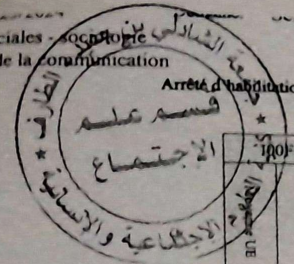 ciales - sociologie
de la communication
Arrêté d'habilitation
جامعة الشاذلي بن جديد الطارف
قسم علم
الاجتماع
الاجتماعية والإنسانية
UE